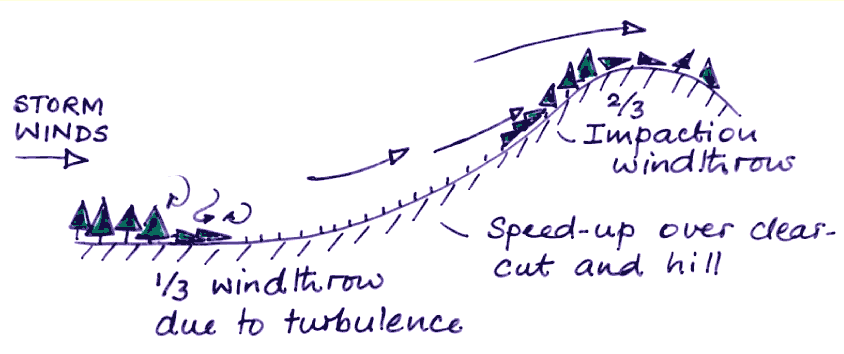 STORM
WINDS
2/3
Impaction
windthrow
Speed-up over clear-
cut and hill
1/3 windthrow
due to turbulence